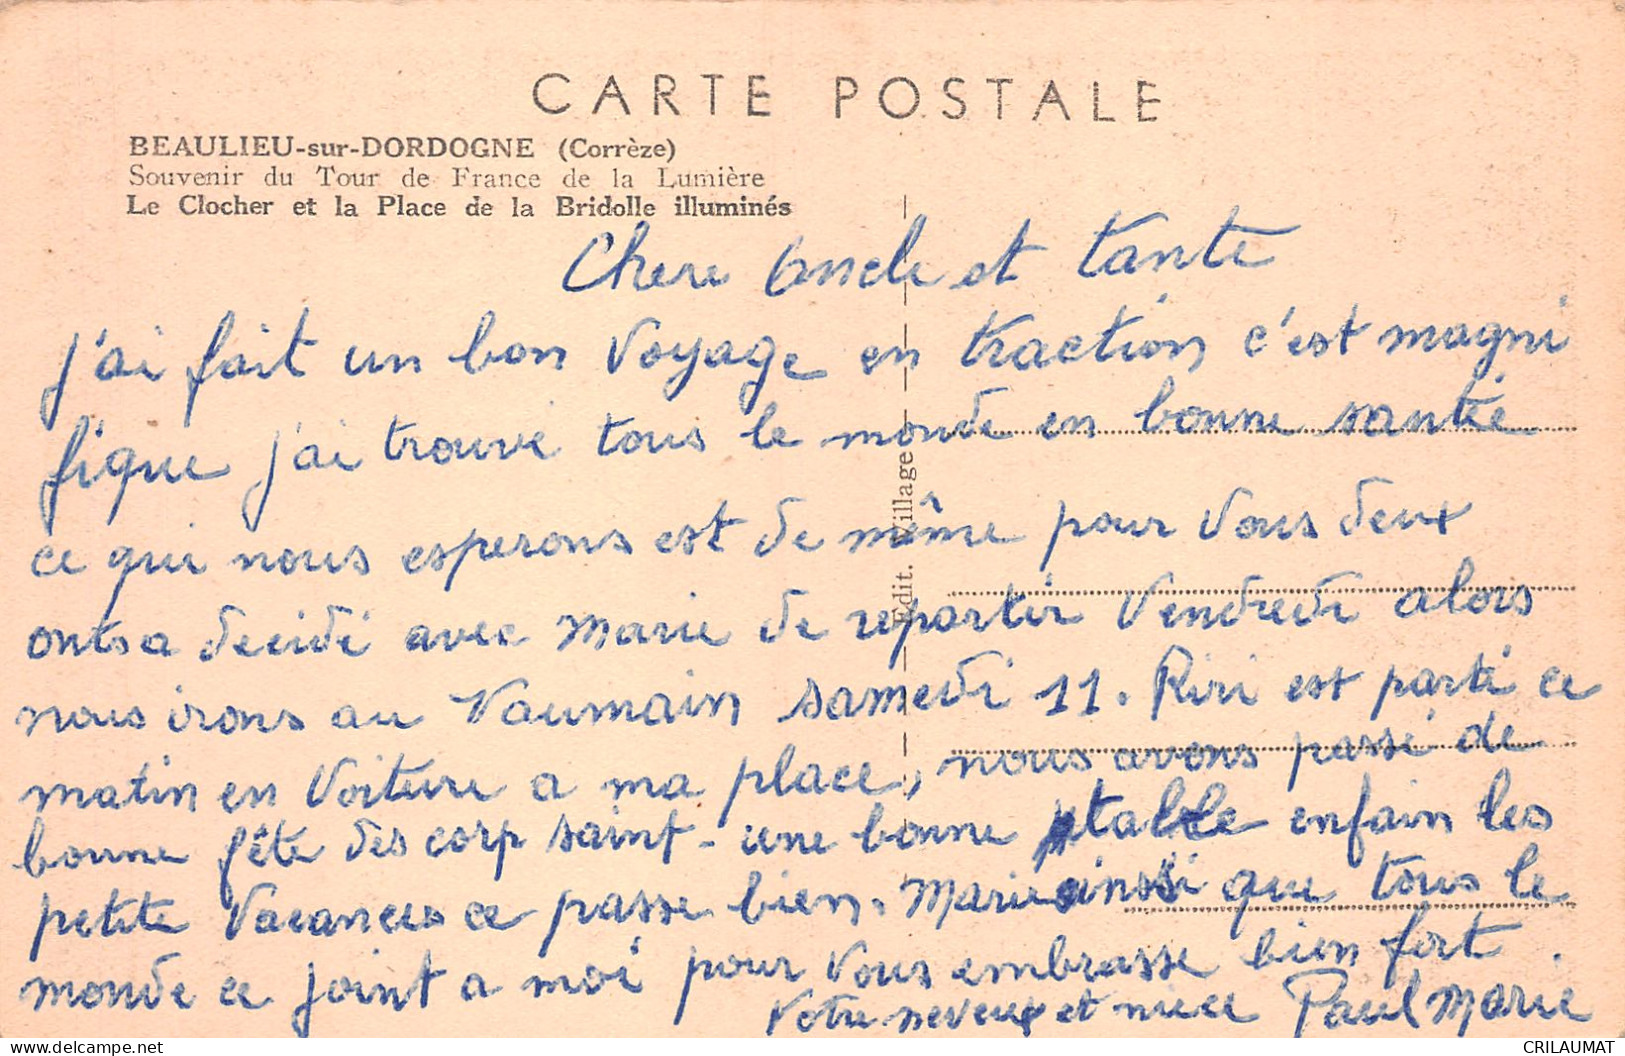 CARTE POSTALE
BEAULIEU-sur-DORDOGNE (Corrèze)
Souvenir du Tour de France de la Lumière
Le Clocher et la Place de la Bridolle illuminés
Edit. Village
Chere Oncle et tante
J'ai fait un bon voyage en traction c'est magni
fique j'ai trouvé tous le monde en bonne santée
ce qui nous esperons est de même pour vous deux
onts a decidé avec Marie de repartir Vendredi alors
nous irons au Vaumain samedi 11. Riri est parti ce
matin en voiture a ma place, nous avons passé de
bonne fête des corp saint - une bonne table enfain les
petite vacances ce passe bien. Marie ainsi que tous le
monde ce joint a moi pour vous embrasse bien fort.
Votre neveux et niece Paul Marie
CRILAUMAT